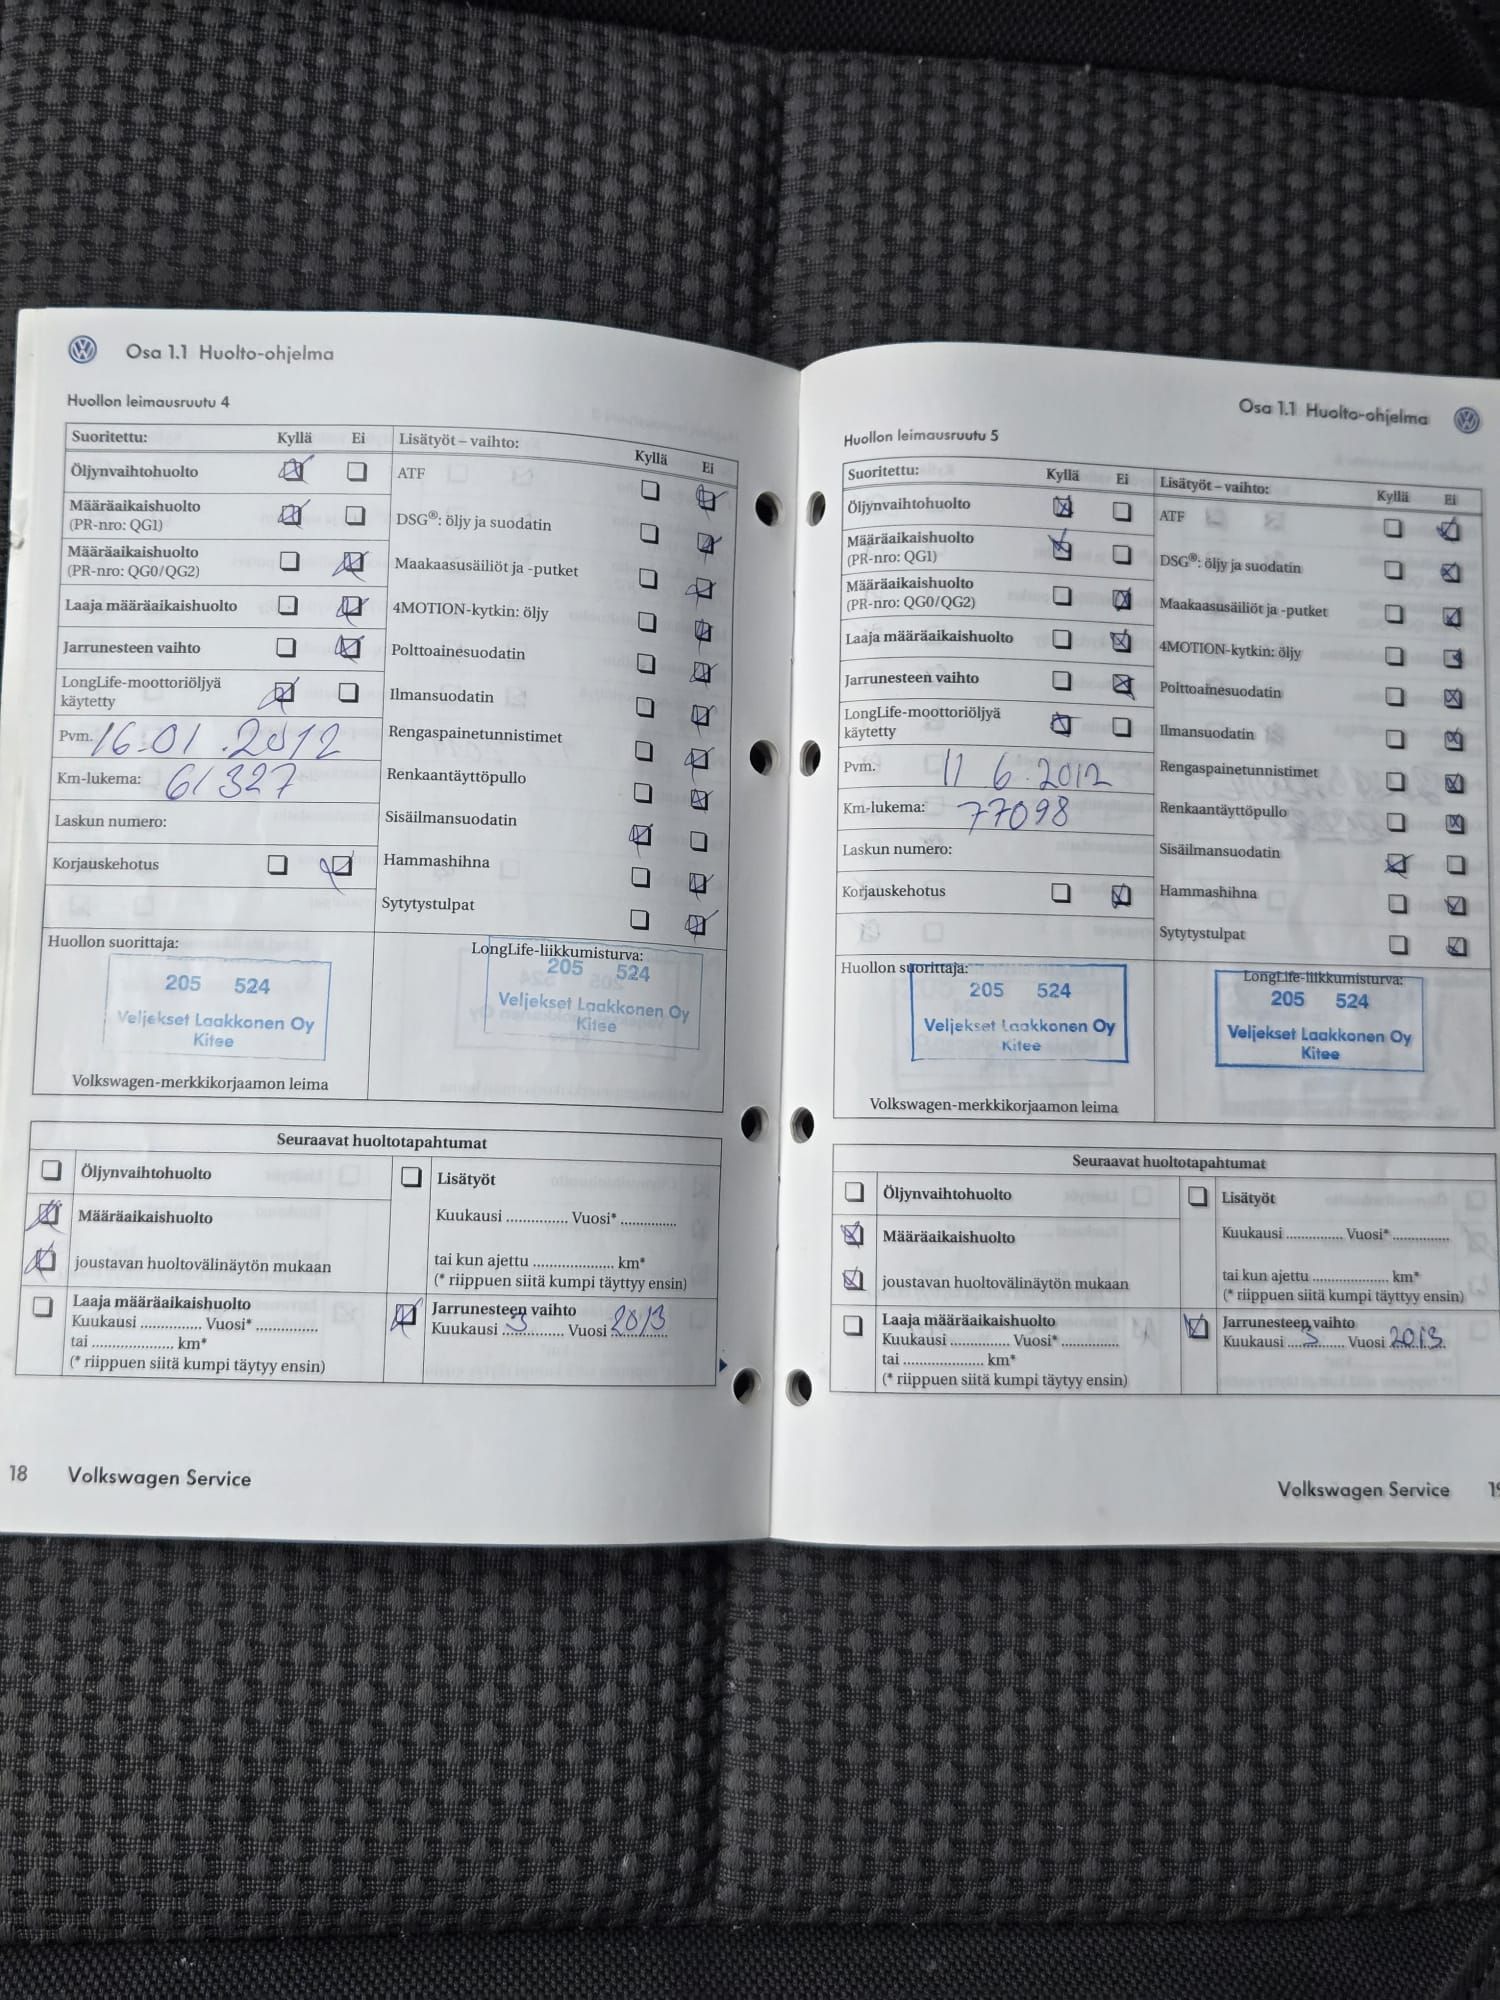 Osa 1.1 Huolto-ohjelma
Huollon leimausruutu 4
Suoritettu: Kyllä Ei
Öljynvaihtohuolto
Määräaikaishuolto
(PR-nro: QG1)
Määräaikaishuolto
(PR-nro: QG0/QG2)
Laaja määräaikaishuolto
Jarrunesteen vaihto
LongLife-moottoriöljyä
käytetty
Pvm. 16.01.2012
Km-lukema: 61327
Laskun numero:
Korjauskehotus
Lisätyöt – vaihto: Kyllä Ei
ATF
DSG®: öljy ja suodatin
Maakaasusäiliöt ja -putket
4MOTION-kytkin: öljy
Polttoainesuodatin
Ilmansuodatin
Rengaspainetunnistimet
Renkaantäyttöpullo
Sisäilmansuodatin
Hammashihna
Sytytystulpat
Huollon suorittaja:
205 524
Veljekset Laakkonen Oy
Kitee
Volkswagen-merkkikorjaamon leima
LongLife-liikkumisturva:
205 524
Veljekset Laakkonen Oy
Kitee
Seuraavat huoltotapahtumat
Öljynvaihtohuolto
Määräaikaishuolto
joustavan huoltovälinäytön mukaan
Laaja määräaikaishuolto
Kuukausi .............. Vuosi* ..............
tai .................... km*
(* riippuen siitä kumpi täytyy ensin)
Lisätyöt
Kuukausi .............. Vuosi* ..............
tai kun ajettu .................... km*
(* riippuen siitä kumpi täyttyy ensin)
Jarrunesteen vaihto
Kuukausi 3 Vuosi 2013
18 Volkswagen Service
Osa 1.1 Huolto-ohjelma
Huollon leimausruutu 5
Suoritettu: Kyllä Ei
Öljynvaihtohuolto
Määräaikaishuolto
(PR-nro: QG1)
Määräaikaishuolto
(PR-nro: QG0/QG2)
Laaja määräaikaishuolto
Jarrunesteen vaihto
LongLife-moottoriöljyä
käytetty
Pvm. 11 6.2012
Km-lukema: 77098
Laskun numero:
Korjauskehotus
Lisätyöt – vaihto: Kyllä Ei
ATF
DSG®: öljy ja suodatin
Maakaasusäiliöt ja -putket
4MOTION-kytkin: öljy
Polttoainesuodatin
Ilmansuodatin
Rengaspainetunnistimet
Renkaantäyttöpullo
Sisäilmansuodatin
Hammashihna
Sytytystulpat
Huollon suorittaja:
205 524
Veljekset Laakkonen Oy
Kitee
Volkswagen-merkkikorjaamon leima
LongLife-liikkumisturva:
205 524
Veljekset Laakkonen Oy
Kitee
Seuraavat huoltotapahtumat
Öljynvaihtohuolto
Määräaikaishuolto
joustavan huoltovälinäytön mukaan
Laaja määräaikaishuolto
Kuukausi .............. Vuosi* ..............
tai .................... km*
(* riippuen siitä kumpi täytyy ensin)
Lisätyöt
Kuukausi .............. Vuosi* ..............
tai kun ajettu .................... km*
(* riippuen siitä kumpi täyttyy ensin)
Jarrunesteen vaihto
Kuukausi 3 Vuosi 2013
Volkswagen Service